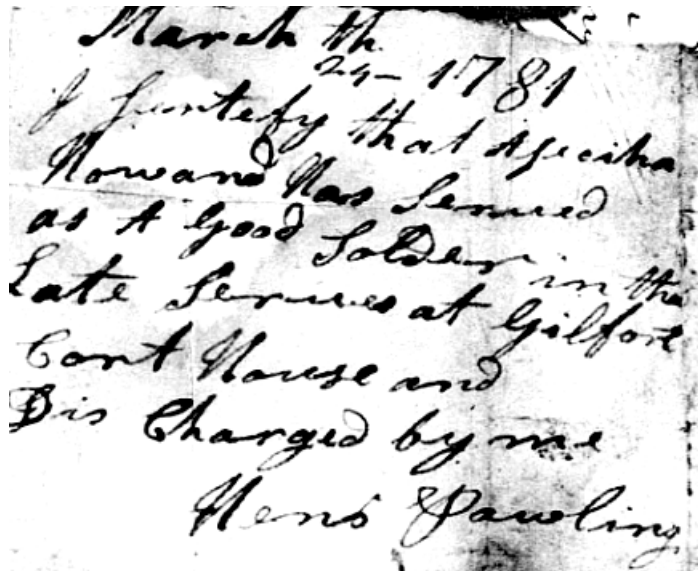 March th
24- 1781
I Suntefy that
Howard Has Served
as A Good Solder in the
Late Serves at Gilfort
Cort House and
Dis Charged by me
Henr Pawling